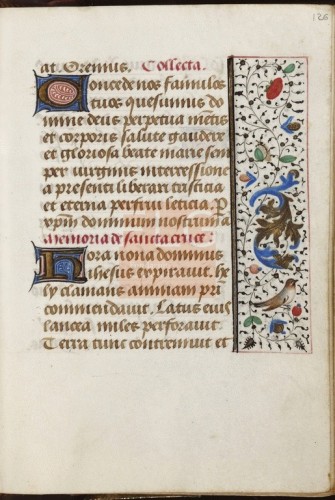 126
at. Oremus. Collecta.
Concede nos famulos
tuos quesumus do
mine deus perpetua mētis
et corporis salute gaudere
et gloriosa beate marie sem
per virginis intercessione
a presenti liberari tristicia
et eterna perfrui leticia. P
xp̄m dominum nostrum a
Memoria de sancta cruce.
Hora nona dominus
ihesus expiravit. he
ly clamans animam pri
commendavit. Latus eius
lancea miles perforavit.
Terra tunc contremuit et